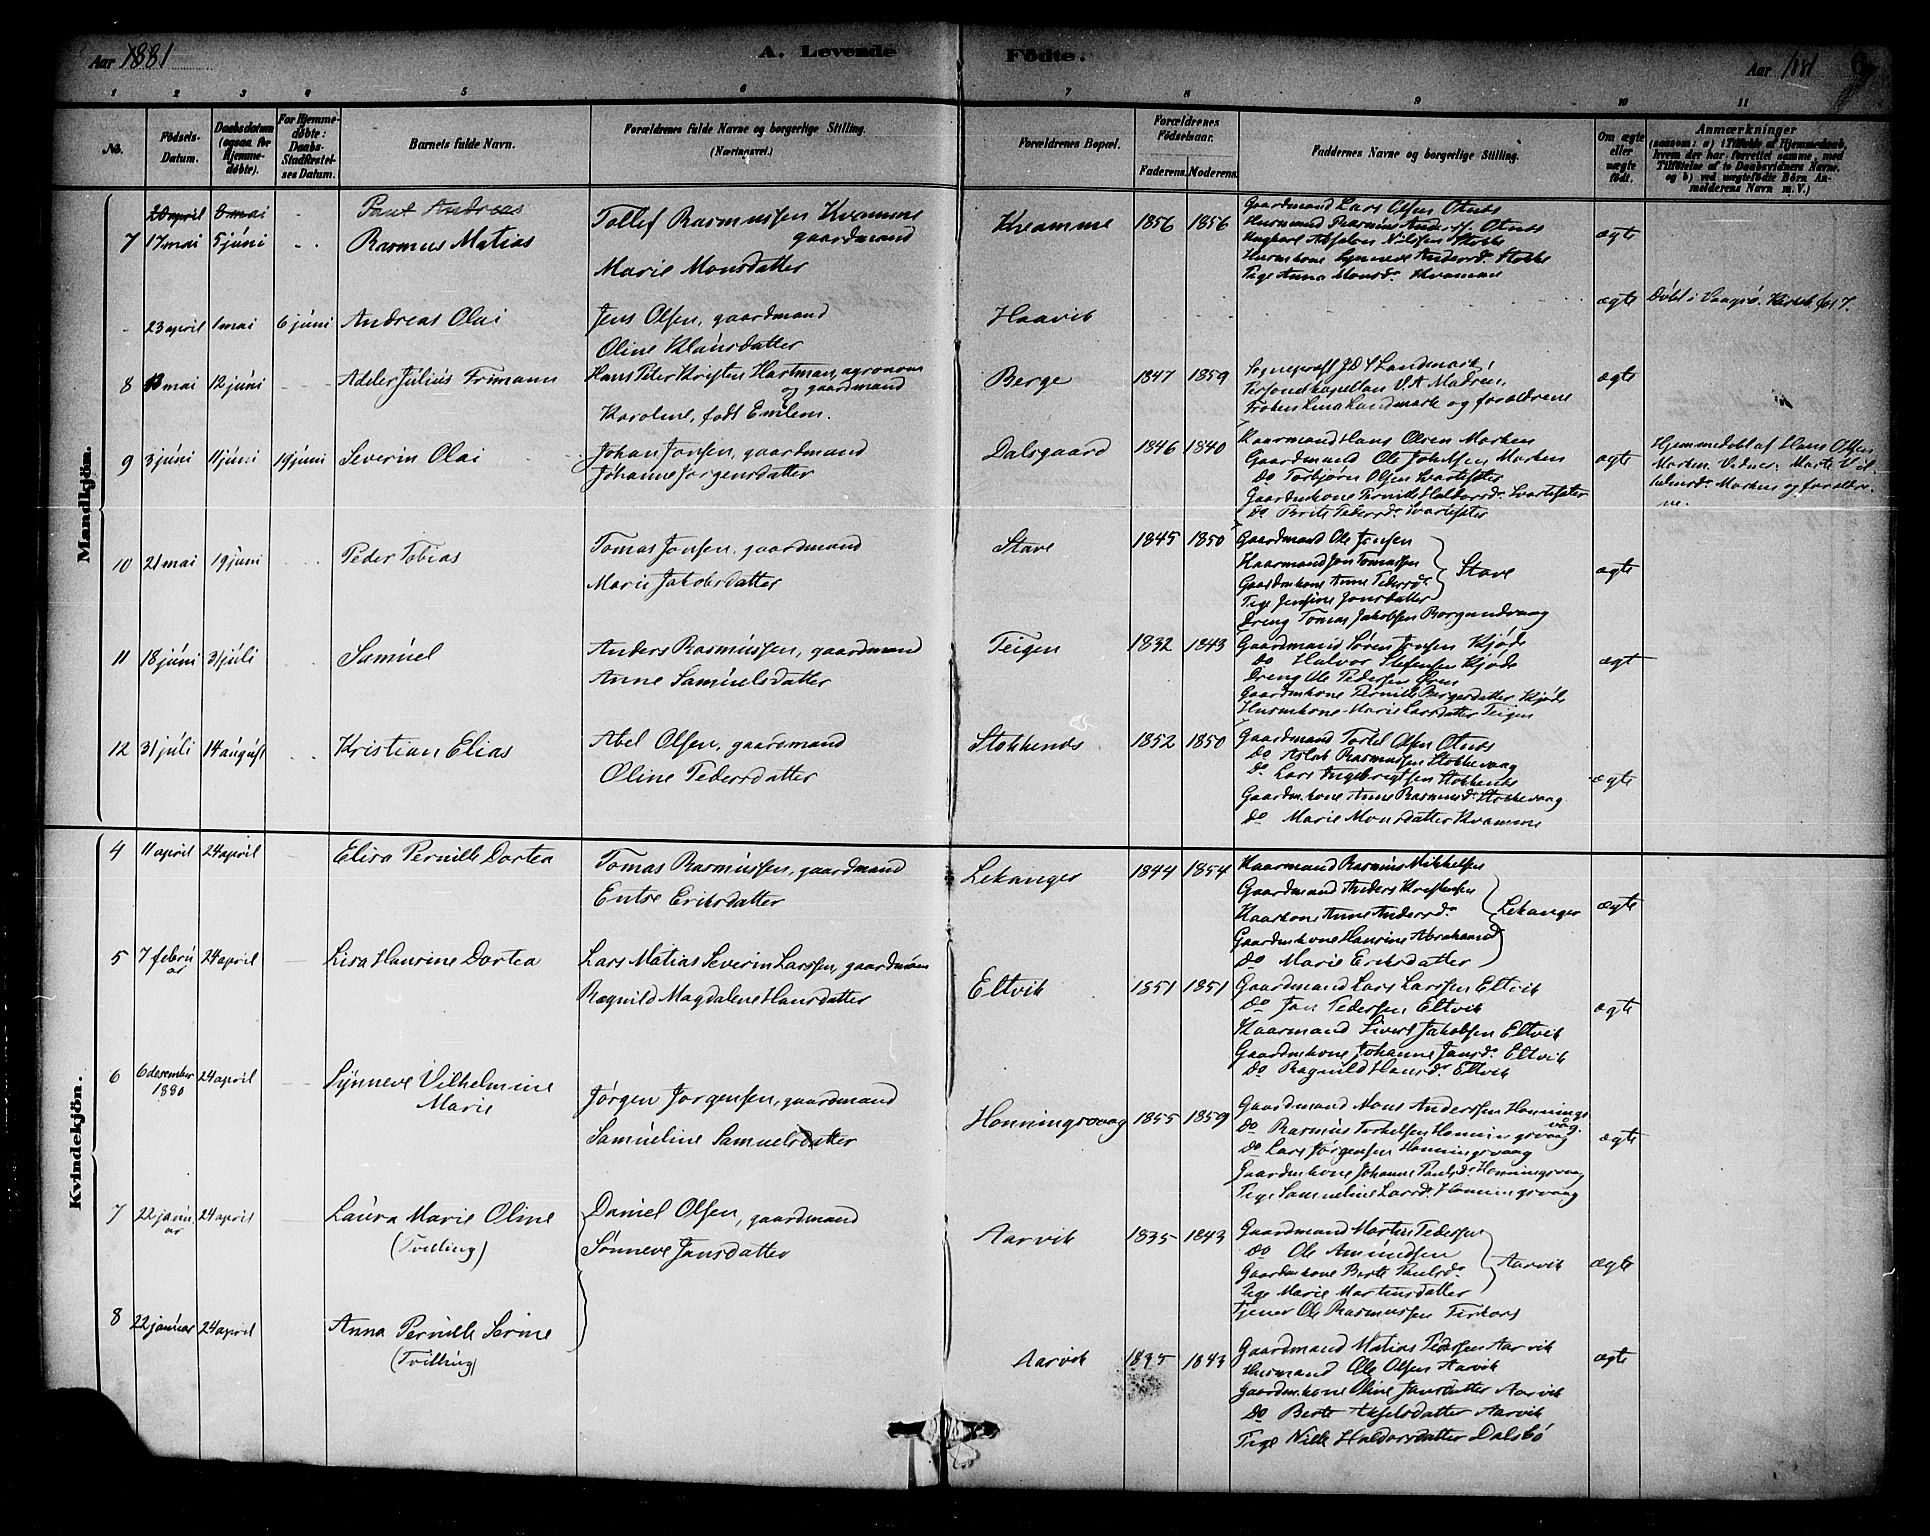 Aar 1881 A. Levende Födte. Aar 1881 6
1 2 3 4 5 6 7 8 9 10 11
No. Födsels-Datum. Daabsdatum (ogsaa for Hjemme-døbte). For Hjemme-døbte: Daabs-Stadfæstel-ses Datum. Barnets fulde Navn. Forældrenes fulde Navne og borgerlige Stilling. (Næringsvei.) Forældrenes Bopæl. Forældrenes Födselsaar. Faderens. Moderens. Faddernes Navne og borgerlige Stilling. Om ægte eller uægte födt. Anmærkninger (saasom: a) i Tilfælde af Hjemmedaab, hvem der har forrettet samme, med Tilföielse af to Daabsvidners Navne, og b) ved uægtefödte Börn An-melderens Navn m. V.)
Mandkjön.
20 april 8 mai Paul Andreas
7 17 mai 5 júni Rasmus Matias
Tollef Rasmussen Kvamme
gaardmand
Marie Monsdatter
Kvamme 1856 1856
Gaardmand Lars Olsen Otnes
Husmand Rasmus Anderss. Otnes
Ungkarl Absalon Nilssen Stokke
Huskone Synneve Andersd. Stokke
Pige Anna Monsd. Kvamme
ægte
- 23 april 1 mai 6 júni Andreas Olai
Jens Olsen, gaardmand
Oline Klausdatter
Haavik
ægte Døbt i Vaagsø Kirke
8 13 mai 12 júni Adeler Julius Frimann
Hans Peter Kristen Hartman, agronom
og gaardmand
Karoline, født Emlem.
Berge 1847 1859
Sogneprest J.D.S Landmark,
Personelkapellan V.A. Madsen,
Frøken Lina Landmark og forældrene
ægte
9 3 júni 11 júni 19 júni Severin Olai
Johan Jonsen, gaardmand
Johanne Jørgensdatter
Dalsgaard 1846 1840
Kaarmand Hans Olsen Morken
Gaardmand Ole Johnsen Morken
Do Torbjørn Olsen Svartefster
Gaardmkone Pernille Haldorsd. Svartefster
Do Berte Pedersd. Svartefster
ægte
Hjemmedøbt af Hans Olsen
Morken. Vidner: Marte Vil-
helmsd. Morken og forældre-
ne.
10 21 mai 19 juni Peder Tobias
Tomas Jonsen, gaardmand
Marie Jakobsdatter
Stave 1845 1850
Gaardmand Ole Jensen
Kaarmand Jon Tomassen
Gaardmkone Anne Pedersd.
Pige Jensine Jonsdatter
Stave
Dreng Tomas Jakobsen Borgundvaag
ægte
11 18 júni 3 júli Samúel
Anders Rasmússen, gaardmand
Anne Samúelsdatter
Teigen 1832 1843
Gaardmand Søren Jensen Kjøde
Do Halvor Stefensen Kjøde
Dreng Ole Pedersen
Gaardmkone Pernille Børgesdatter Kjøde
Husmkone Marie Larsdatter Teigen
ægt
12 31 júli 14 august Kristian Elias
Abel Olsen, gaardmand
Oline Pedersdatter
Stokkenes 1852 1850
Gaardmand Torkel Olsen Otnes
Do Aslak Rasmussen Stokkevaag
Do Lars Ingebrigtsen Stokkenes
Gaardm.kone Anne Rasmusd. Stokkevaag
Do Marie Monsdatter Kvamme
ægte
Kvindekjön.
4 11 april 24 april Elisa Pernille Dortea
Tomas Rasmússen, gaardmand
Entse Eriksdatter
Lekanger 1844 1854
Kaarmand Rasmus Mikkelsen
Gaardmand Anders Kristensen
Kaarkone Anne Andersd.
Gaardmkone Hansine Abrahamsd
Do Marie Eriksdatter
Lekanger
ægte
5 7 febru
ar 24 april Lisa Hansine Dortea
Lars Matias Severin Larssen, gaardmann
Ragnild Magdalene Hansdatter
Eltvik 1851 1851
Gaardmand Lars Larssen Eltvik
Do Jan Pedersen Eltvik
Kaarmand Sivert Jakobsen Eltvik
Gaardmkone Johanne Jansd. Eltvik
Do Ragnild Hansd. Eltvik
ægte
6 6 desember
1880 24 april Synneve Vilhelmine
Marie
Jørgen Jørgensen, gaardmand
Samúeline Samuelsdatter
Honningsvaag 1855 1859
Gaardmand Mons Anderssen Honnings
vaag.
Do Rasmus Torkelsen Honningsvaag
Do Lars Jørgensen Honningsvaag
Gaardmkone Johanne Paulsd. Honningsvaag
Pige Samueline Larsd. Honningsvaag
ægte
7 22 janu
ar 24 april Laúra Marie Oline
(Tvilling)
Daniel Olsen, gaardmand
Sønneve Jansdatter
Aarvik 1835 1843
Gaardmand Martin Pedersen
Do Ole Amúndsen
Gaardmkone Berte Paulsd.
Pige Marie Martinsdatter
Aarvik
Tjener Ole Rasmussen
ægte
8 22 januar 24 april Anna Pernille Serine
(Tvilling)
Aarvik 1835 1843
Gaardmand Matias Pedersen Aarvik
Husmand Ole Olsen Aarvik
Gaardmkone Oline Jansdatter Aarvik
Do Berte Akselsdatter Aarvik
Pige Nille Haldorsdatter Dalsbø
ægte